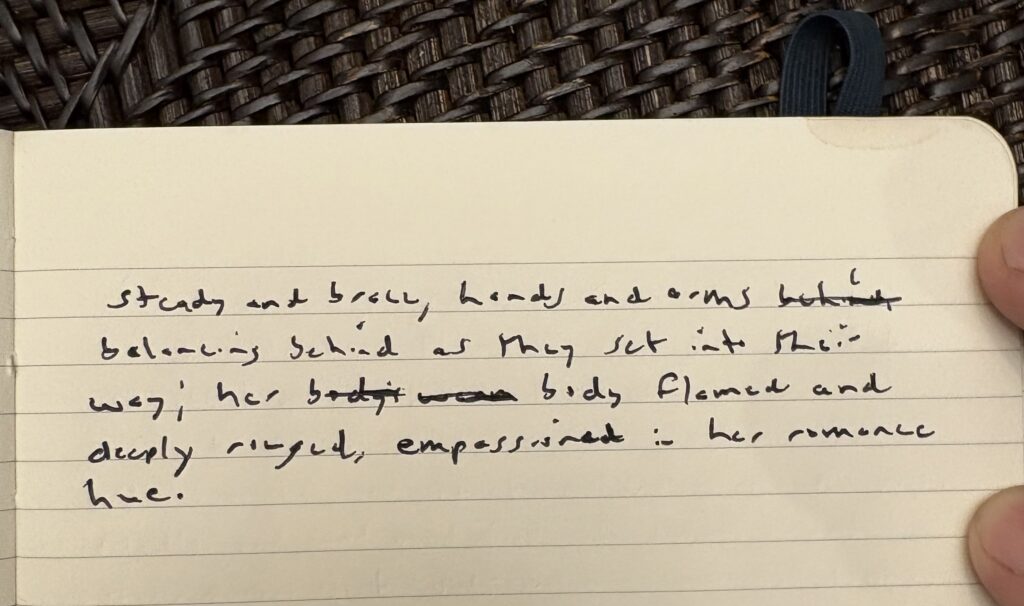 steady and brace, hands and arms behind
balancing behind as they set into their
way; her body body flamed and
deeply ringed, empassioned in her romance
hue.